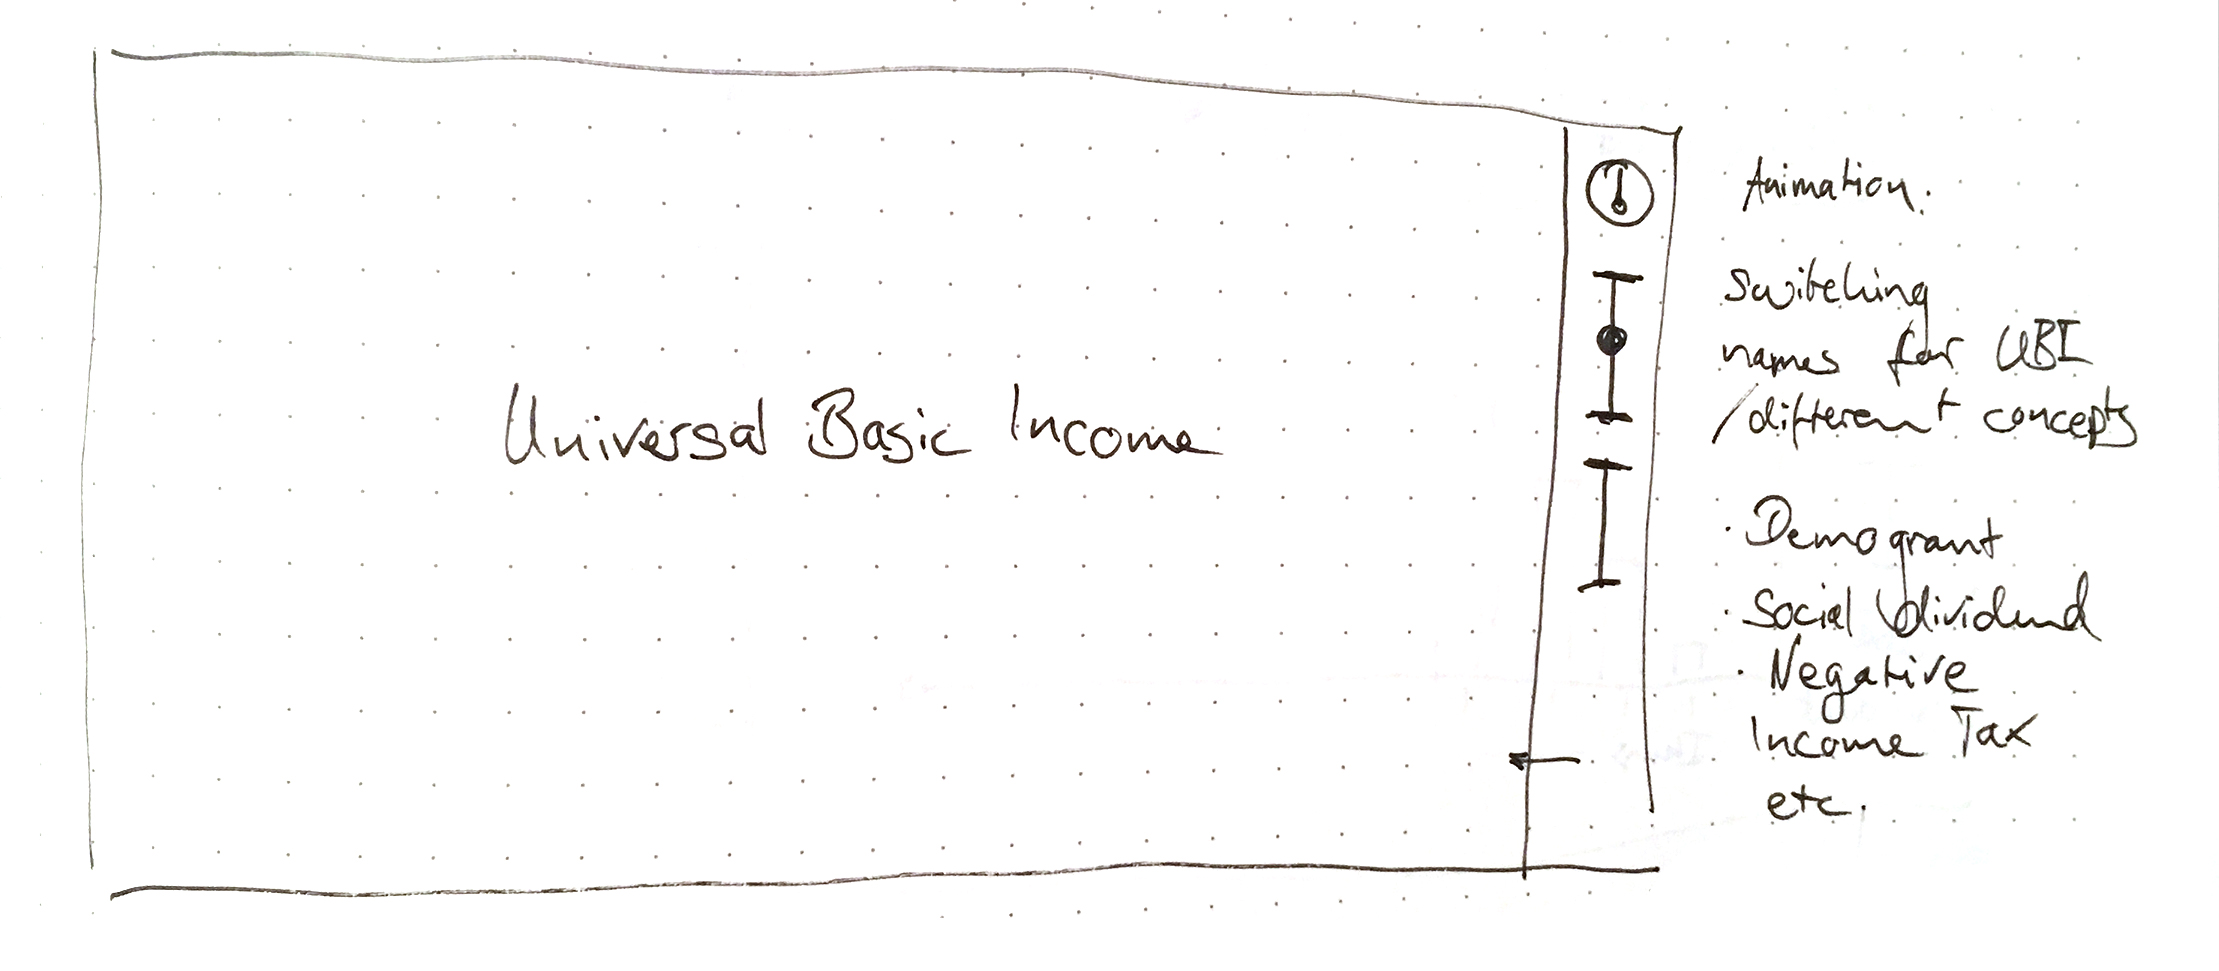 Universal Basic Income
Animation:
Switching
names for UBI
/different concepts
· Demogrant
· Social dividend
· Negative
Income Tax
etc.